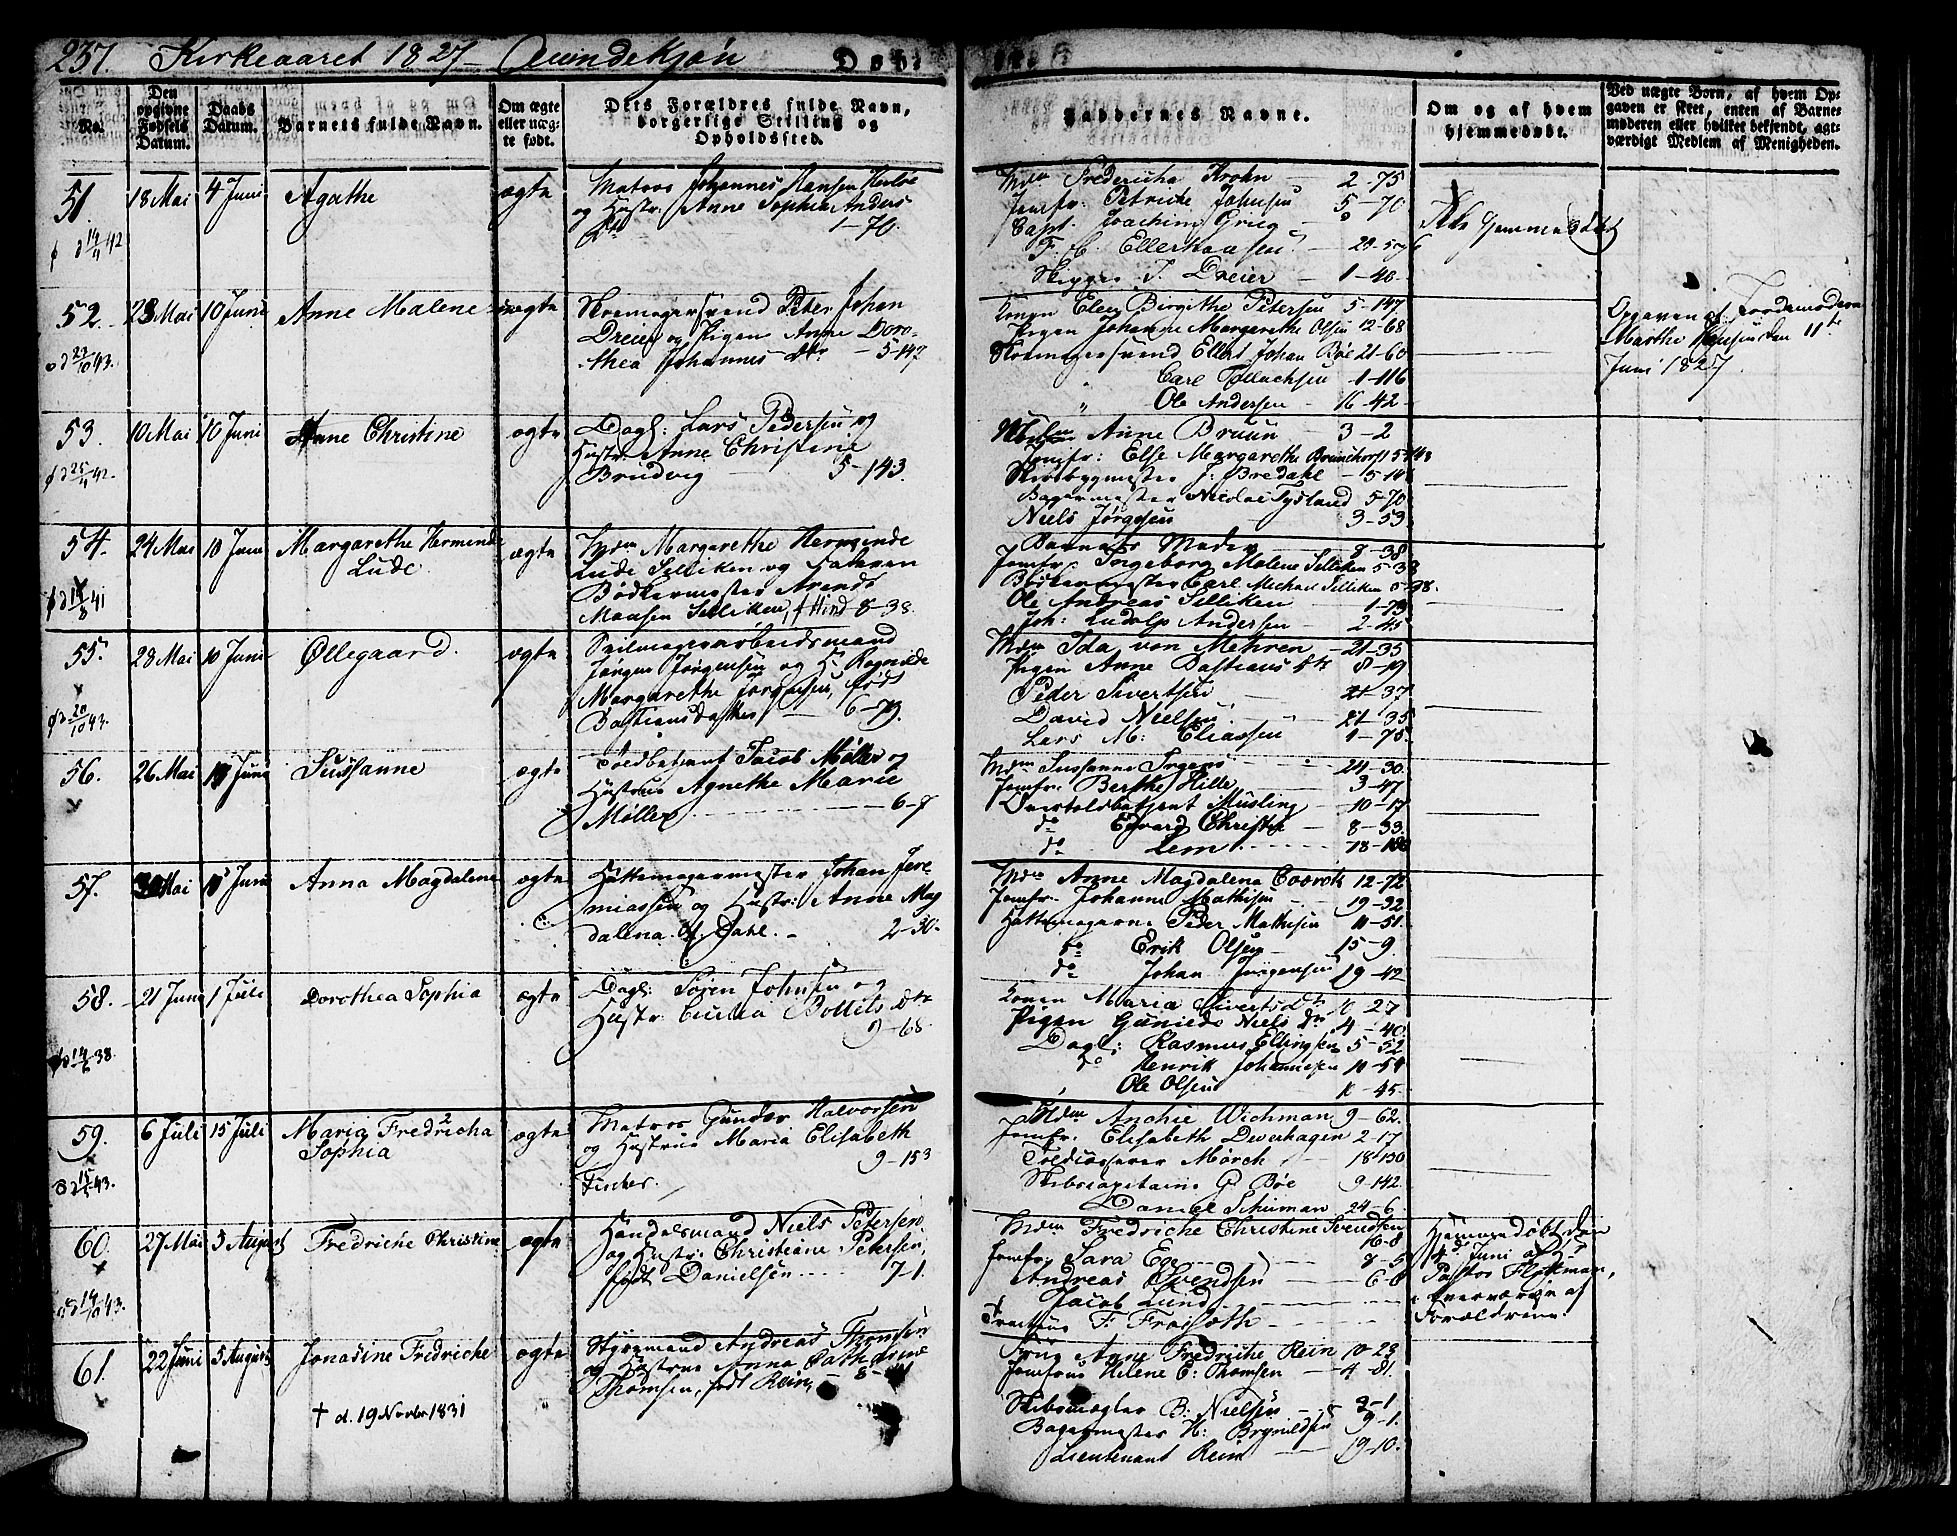 237. Kirkeaaret 1827 Qvindekjøn Døbte
No.
Den opgivne Fødsels Datum.
Daabs Datum.
Barnets fulde Navn.
Om ægte eller uægte født.
Dets Forældres fulde Navn, borgerlige Stilling og Opholdssted.
Faddernes Navne.
Om og af hvem hjemmedøbt.
Ved uægte Børn, af hvem Opgaven er skeet, enten af Barnemoderen eller hvilket bekjendt, agtværdigt Medlem af Menigheden.
51. 18 Mai 4 Juni Agathe ægte
Matros Johannes Hansen
og Hustr: Anne Sophia Anders
Dtr 1-70.
Mdm Fredericha Krohn 2-75
Jomfr: Petriche Johnsen 5-70
Capt. Joachim Grieg
F. C. Ellerhausen
Skipper J. Dreier 1-40
52. 23 Mai 10 Juni Anne Malene uægte
Skomagersvend Peter Johan
Dreier og Pigen Anne Doro-
thea Johannes dtr 5-147
Konen Elen Birgithe Petersen 5-147
Pigen Johanne Margarethe Olsen 12-68
Skomagersvend Ellert Johan Bøe 21-60
" Carl Tollachsen 1-116
" Ole Andersen 16-42
Opgaven af Jordemoderen
Marthe Hansen den 11te
Juni 1827
53. 10 Mai 10 Juni Anne Christine ægte
Dagl: Lars Pedersen og
Hustr: Anne Christine
Brudvig 5-143.
Anne Bruun 3-2
Jomfr: Else Margarethe
Skibsbygmester J: Bredahl
Bagermester Nicolai Tydland 5-70
Niels Jørgesen 3-53
54. 24 Mai 10 Juni Margarethe Herminde
Lude ægte
Mdm Margarethe Herminde
Lude Selliken og Faderen
Bødkermester Arend
Mansen Selliken, 8-38
Barnets Moder 8-38
Jomfr: Ingeborg Malene Selliken 5-38
Bødkermester Carl Michael Selliken 5-38.
Ole Andreas Selliken 1-79
Joh: Ludolp Andersen 2-45
55. 28 Mai 10 Juni Øllegaard ægte
Seilmagerarbeidsmand
Jørgen Jørgensen og H. Ragnilde
Margarethe Jørgensen, født
Bastiansdatter 6-79.
Mdm Ida von Mehren 21-35
Pigen Anne Bastians Dtr 8-19
Peder Sivertsen 21-37
David Nielsen 21-35
Lars M: Eliassen 1-75
56. 26 Mai Juni Sussanne ægte
Toldbetjent Jacob Møller og
Hustrue Agnethe Marie
Møller 6-7
Mdm Sussanne Irgens 24-30.
Jomfr: Berthe Hille 3-47
Overtoldbetjent Müsling 10-17
do Edvard Christie 8-33.
do Lem
57. Mai Juni Anna Magdalene ægte
Hattemagermester Johan Jere-
miassen og Hustr: Anne Mag
dalena Dahl. 2-30.
Mdm Anne Magdalena 12-72
Jomfr: Johanne Mathisen 19-32
Hattemagerne Peder Mathisen 11-51.
do Erik Olsen 15-9
do Johan Jørgensen 19-42
58. 21 Juni 1 Juli Dorothea Sophia ægte
Dagl: Søren Johnsen og
Hustr: Cecilia Dtr
9-68.
Konen Maria Siverts Dtr 10-27
Pigen Gunild Niels Dtr 4-40.
Dagl: Rasmus Ellingsen 5-52
do Henrik Johannesen 10-54
Ole Olsen 11-45
59. 6 Juli 15 Juli Maria Fredricha
Sophia ægte
Matros Gunder Halvorsen
og Hustrue Maria Elisabeth
9-153
Fischer.
Mdm Anchie Wichman 9-62.
Jomfr: Elisabeth Devenhagen 2-17
Toldcasserer Mørch 18-130
Skibscapitaine G Bøe 9-142.
Daniel Schuman 24-6.
60. 27 Mai 5 August Fredriche Christine ægte
Handelsmand Niels Petersen
og Hustr: Christiane Petersen,
født Danielsen 7-1.
Mdm Fredriche Christine Svendsen
16-8
Jomfr: Sara Ege
Andreas Svendsen
Jacob Lund
F.
Hjemmedøbt den
4de Juni af Hr
Pastor Flottman,
overværing af
Forældrene.
61. 22 Juni 5 August Jonadine Fredriche ægte
† d. 19 Novbr 1831
Styrmand Andreas Thomsen
og Hustrue Anna Cathrine
Thomsen, født Rein,
Frue Anne Fredriche Rein 10-23
Jomfrue Helene C: Thomsen 4-81.
Skibsmægler B: Nielsen 3-1
Bagermester H: Brynildsen 9-1.
Lieutenant Rein 19-10.